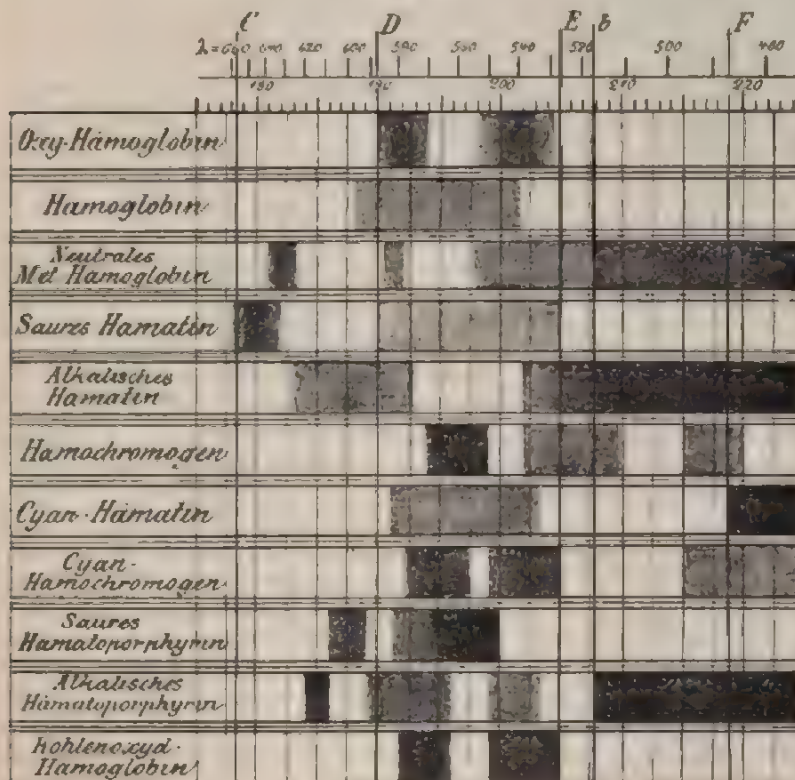 C D E b F
λ= 660 640 620 600 590 560 540 520 500 480
180 190 200 210 220
Oxy-Hämoglobin
Hämoglobin
Neutrales
Met Hämoglobin
Saures Hämatin
Alkalisches
Hämatin
Hämochromogen
Cyan-Hämatin
Cyan-
Hämochromogen
Saures
Hämatoporphyrin
Alkalisches
Hämatoporphyrin
Kohlenoxyd-
Hämoglobin